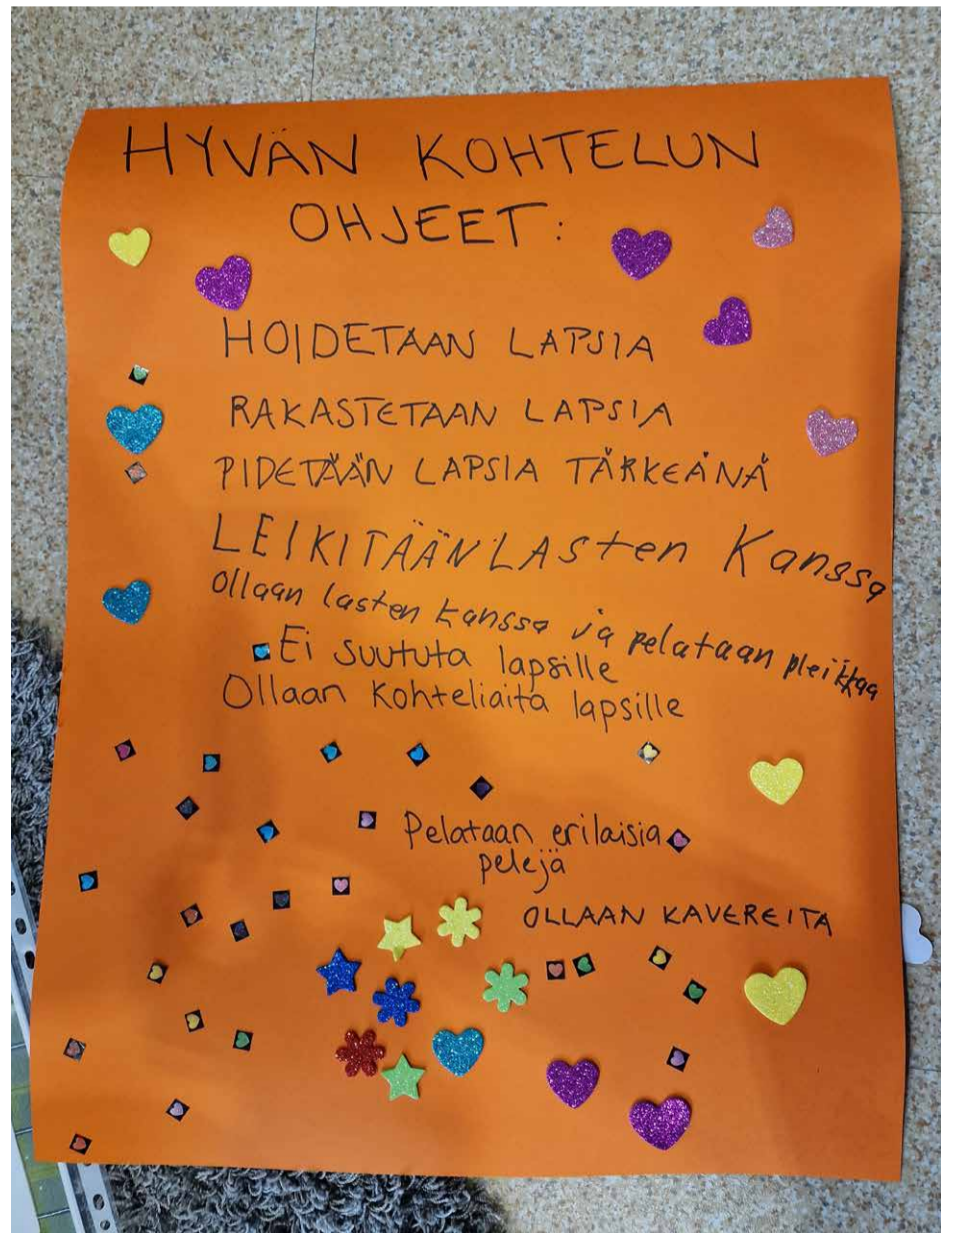 HYVÄN KOHTELUN
OHJEET:
HOIDETAAN LAPSIA
RAKASTETAAN LAPSIA
PIDETÄÄN LAPSIA TÄRKEÄNÄ
LEIKITÄÄN LASten Kanssa
ollaan lasten kanssa ja pelataan pleikkaa
Ei suututa lapsille
Ollaan kohteliaita lapsille
Pelataan erilaisia
pelejä
OLLAAN KAVEREITA